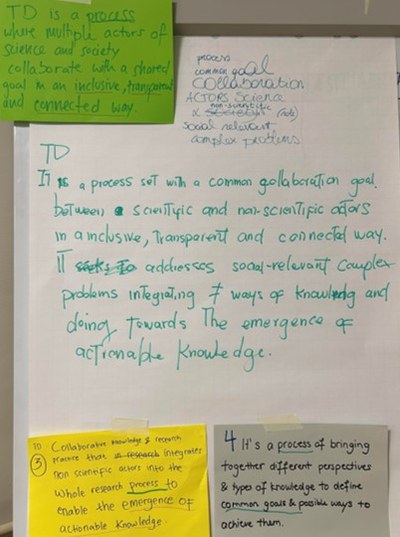 TD is a process
where multiple actors of
science and society
collaborate with a shared
goal in an inclusive, transparent
and connected way.
process
common goal
COLLABORATION
ACTORS Science
non-scientific
& (role)
Social relevant
complex problems
TD
It is a process set with a common gollaboration goal.
between scientific and non-scientific actors
in a inclusive, transparent and connected way.
IT seeks to addresses social-relevant complex
problems integrating ≠ ways of knowing and
doing towards The emergence of
actionable knowledge.
3
Collaborative knowledge & research
practice that research integrates
non scientific actors into the
whole research process to
enable the emergence of
actionable knowledge
4 It's a process of bringing
together different perspectives
& types of knowledge to define
common goals & possible ways to
achieve them.